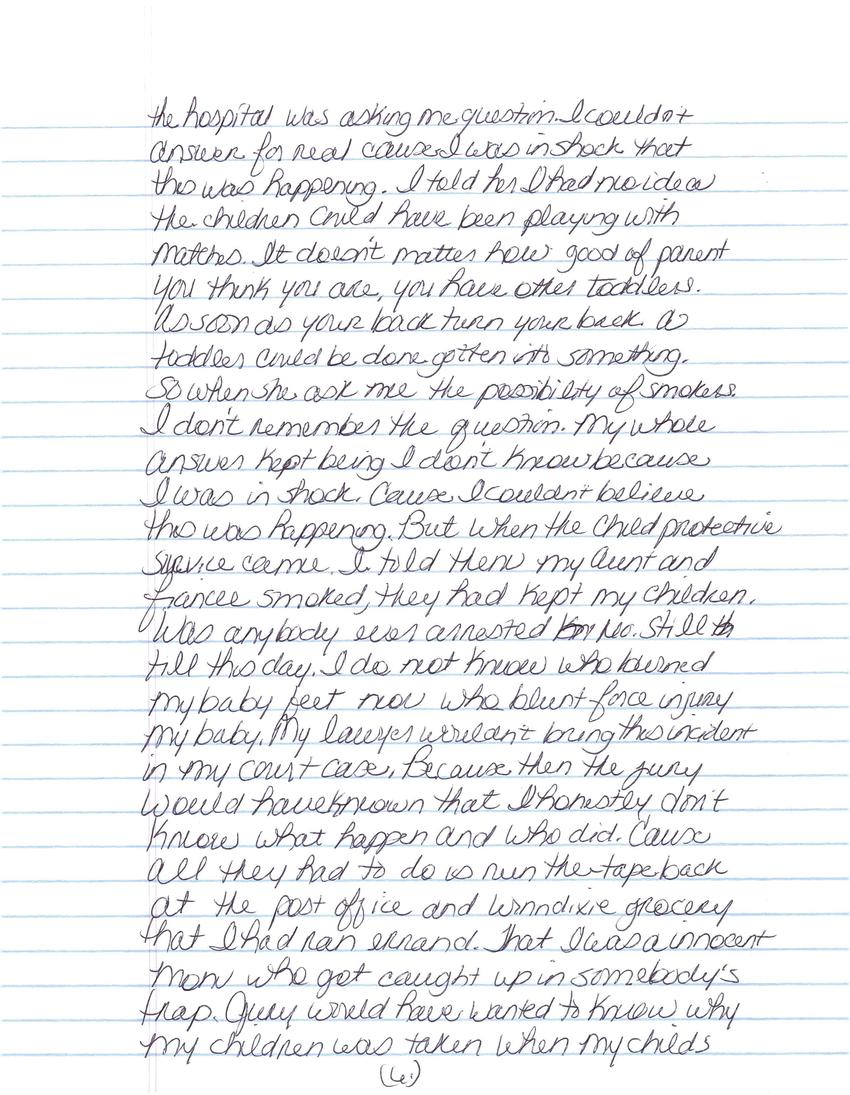 the hospital was asking me question. I couldn't
answer for real cause I was in shock that
this was happening. I told her I had no idea
the children could have been playing with
matches. It doesn't matter how good of parent
you think you are, you have other toddlers.
As soon as your back turn your back a
toddler could be done gotten into something.
So when she ask me the possibility of smokers.
I don't remember the question. My whole
answer kept being I don't know because
I was in shock. Cause I couldn't believe
this was happening. But when the child protective
service came. I told them my Aunt and
fiancee smoked, they had kept my children.
Was anybody ever arrested No. Still
till this day. I do not know who burned
my baby feet nor who blunt force injury
my baby. My lawyer wouldn't bring this incident
in my court case. Because then the jury
would have known that I honestly don't
know what happen and who did. Cause
all they had to do is run the tape back
at the post office and winndixie grocery
that I had ran errand. That I was a innocent
mom who got caught up in somebody's
trap. Jury would have wanted to know why
my children was taken when my childs
(6.)